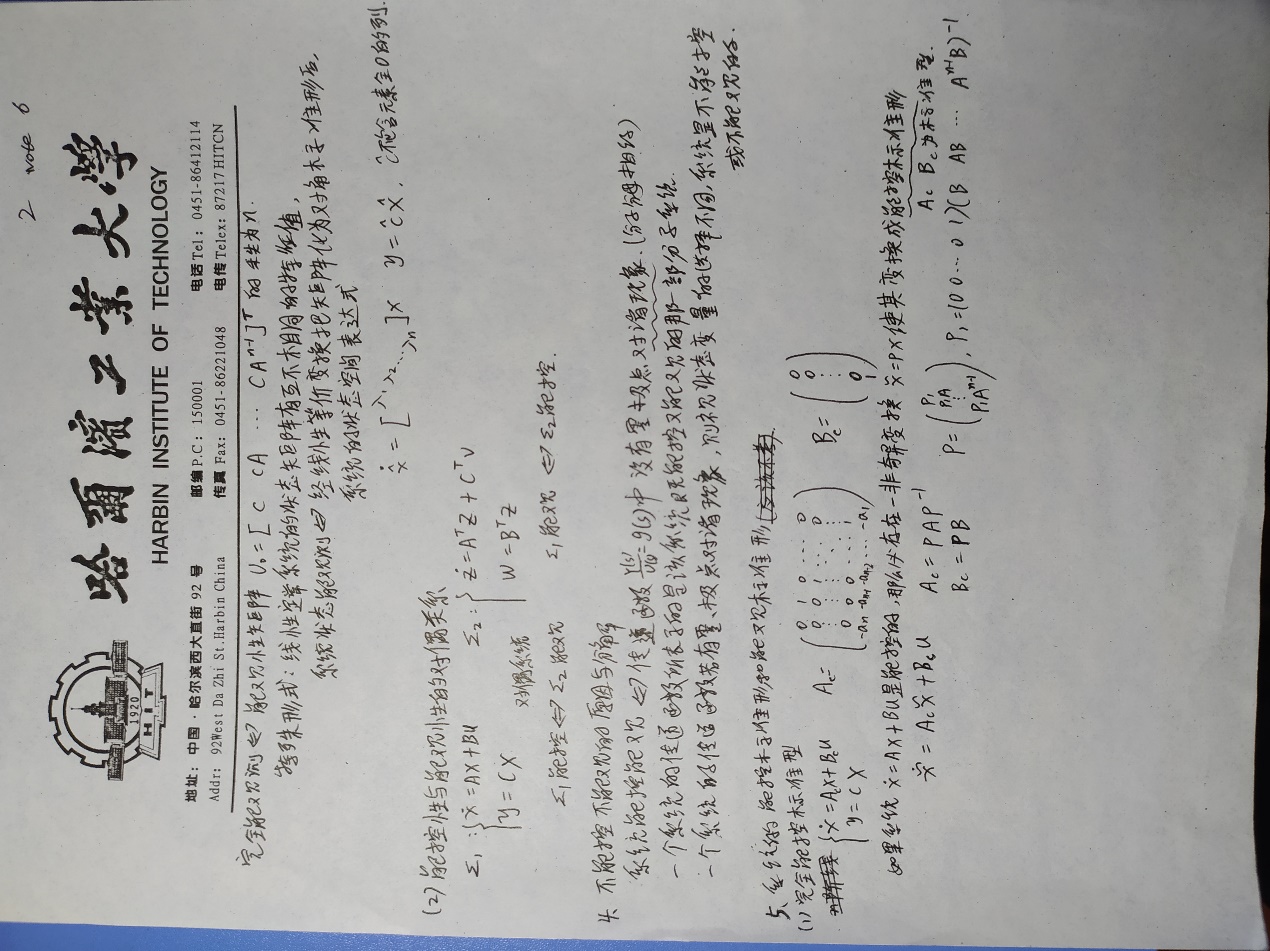 2 note 6
哈爾濱工業大學
HARBIN INSTITUTE OF TECHNOLOGY
1920
HIT
地址:中国·哈尔滨西大直街92号 邮编P.C: 150001 电话Tel: 0451-86412114
Addr: 92West Da Zhi St.Harbin China 传真Fax: 0451-86221048 电传Telex: 87217HITCN
完全能观测 ⇔ 能观性矩阵 U₀=[C CA ⋯ CAⁿ⁻¹]ᵀ 的秩为n.
特殊形式:线性定常系统的状态矩阵有互不相同的特征值,
系统状态能观测 ⇔ 经线性等价变换把矩阵化为对角标准形后,
系统的状态空间表达式
x̂̇=[λ₁ λ₂ ⋯ λn]x y=ĈX̂, Ĉ不含元素全0的列.
(2) 能控性与能观性的对偶关系
Σ₁:{ẋ=AX+BU Σ₂:{Ż=AᵀZ+CᵀV
y=CX W=BᵀZ
对偶系统
Σ₁能控⇔Σ₂能观 Σ₁能观⇔Σ₂能控.
4、不能控不能观的原因与分解
系统能控能观⇔传递函数=g(s)中没有零极点对消现象.(分子分母相约)
一个系统的传递函数所表示的是该系统既能控又能观的那一部分子系统.
一个系统的传递函数若有零、极点对消现象,则视状态变量的选择不同,系统是不能控
或不能观的.
5、系统的能控标准形和能观标准形
(1) 完全能控标准型
{ẋ=AcX+BcU Ac=(0 1 0 ⋯ 0 0 0 1 ⋯ 0 ⋮ 0 0 0 ⋯ 1 -an -an-1 -an-2 ⋯ -a1) Bc=(0 0 ⋮ 0 1)
y=CX
如果系统ẋ=AX+BU是能控的,那么必存在一非奇异变换 x̂=PX使其变换成能控标准形
x̂̇=Acx̂+BcU Ac=PAP⁻¹ Ac Bc为标准型.
Bc=PB P=(P₁ P₁A ⋮ P₁Aⁿ⁻¹), P₁=(0 0 ⋯ 0 1)(B AB ⋯ Aⁿ⁻¹B)⁻¹